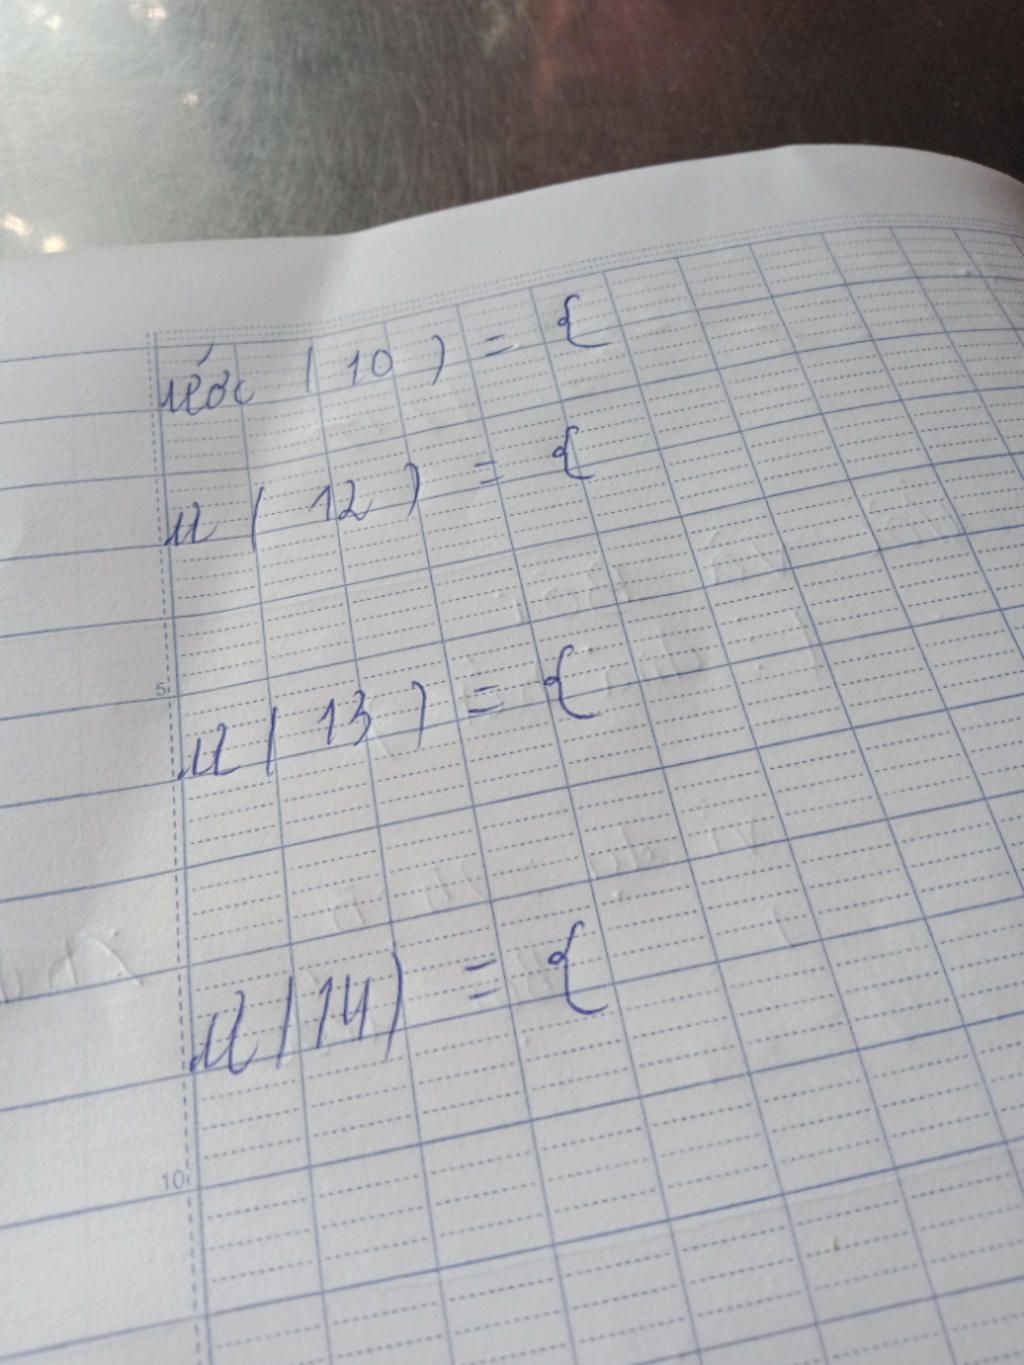 ước ( 10 ) = {
Ư ( 12 ) = {
5
Ư ( 13 ) = {
Ư ( 14 ) = {
10